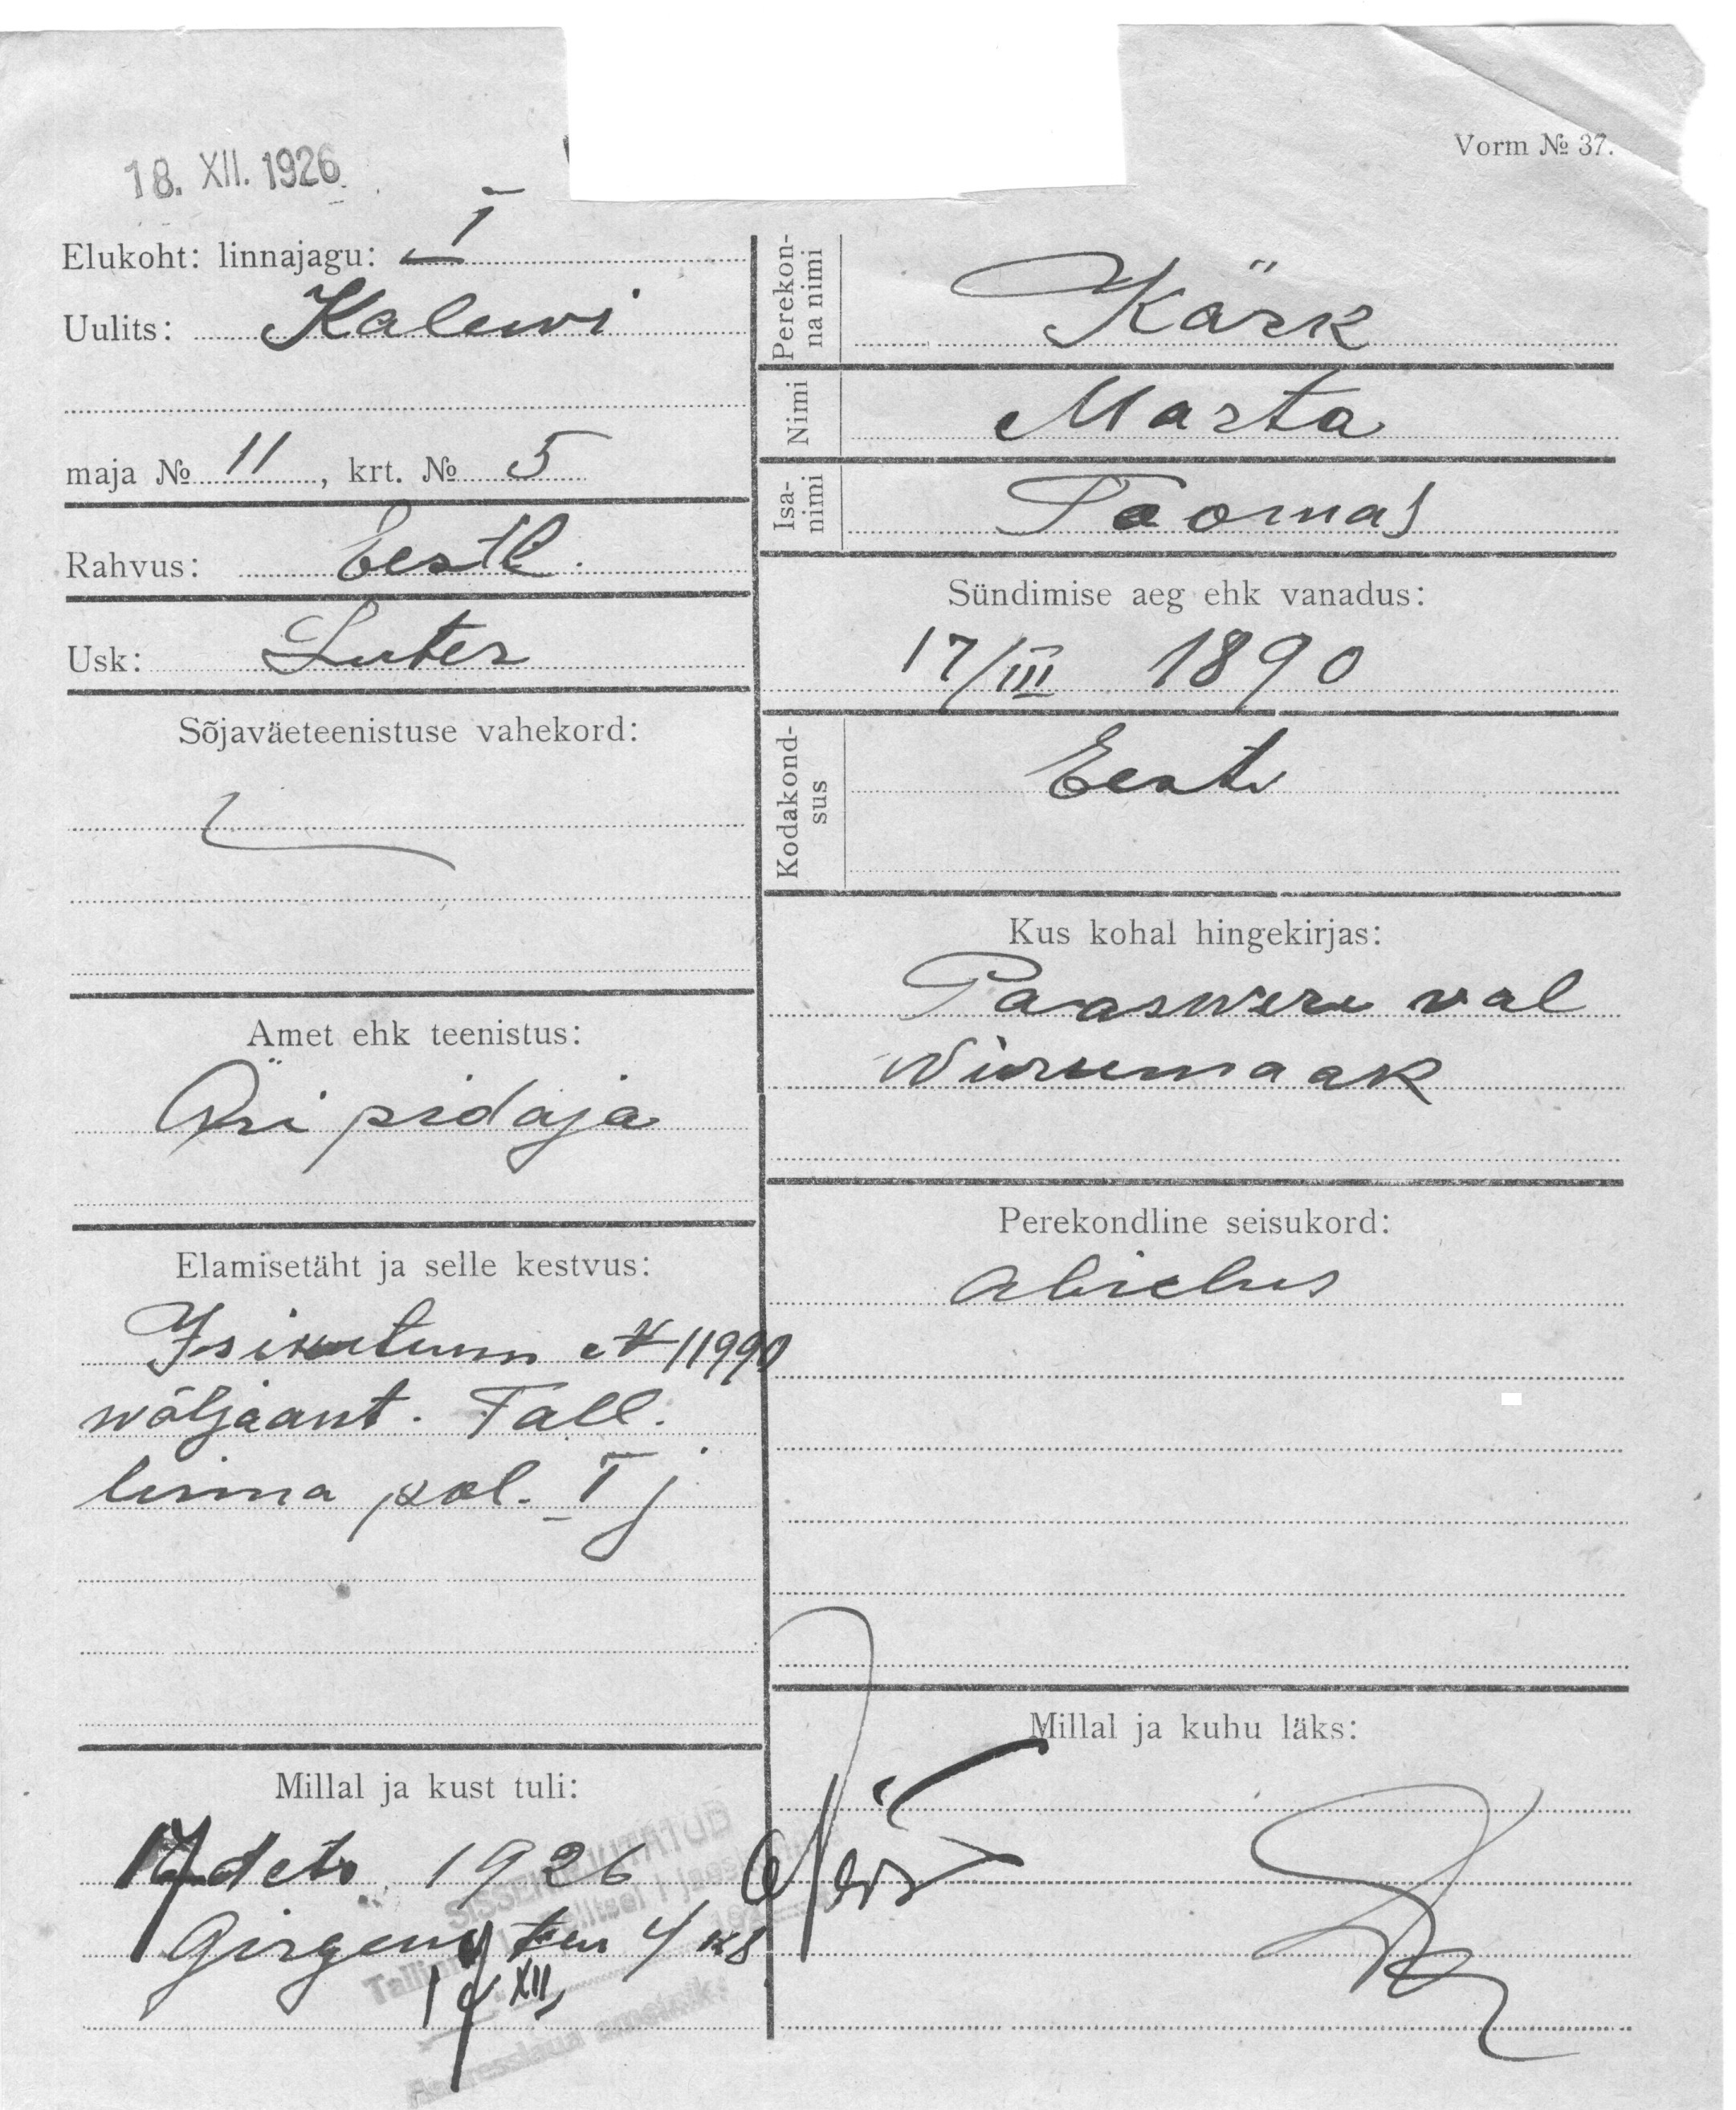 18. XII. 1926
Vorm № 37.
Elukoht: linnajagu: I
Uulits: Kalewi
maja № 11, krt. № 5
Rahvus: Eestl.
Usk: Luter
Sõjaväeteenistuse vahekord:
Amet ehk teenistus:
Äri pidaja
Elamisetäht ja selle kestvus:
Isikutunn N 11990
wäljaant. Tall.
linna pol. I j
Millal ja kust tuli:
17 dets 1926
4 k8
17 XII
SISSEKIRJUTATUD
Tallinna politsei I jaoskonnas
192
Aadresslaua ametnik:
Perekon-
na nimi
Kärk
Nimi
Marta
Isa-
nimi
Toomas
Sündimise aeg ehk vanadus:
17/III 1890
Kodakond-
sus
Eesti
Kus kohal hingekirjas:
Paaswere val
Wirumaak
Perekondline seisukord:
abielus
Millal ja kuhu läks: